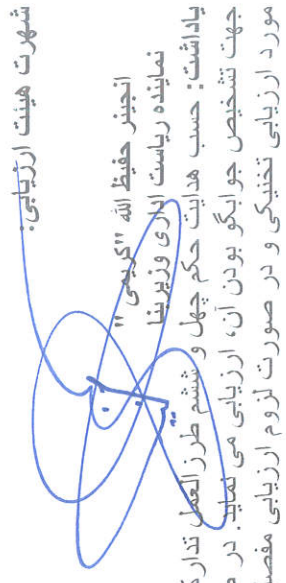 شهرت هیئت ارزیابی:
انجینر حفیظ الله "کریمی"
نماینده ریاست اداری وزیربنا
یاداشت: حسب هدایت حکم چهل و ششم طرزالعمل تدار
جهت تشخیص جوابگو بودن آن، ارزیابی می نماید. در
مورد ارزیابی تخنیکی و در صورت لزوم ارزیابی مفص